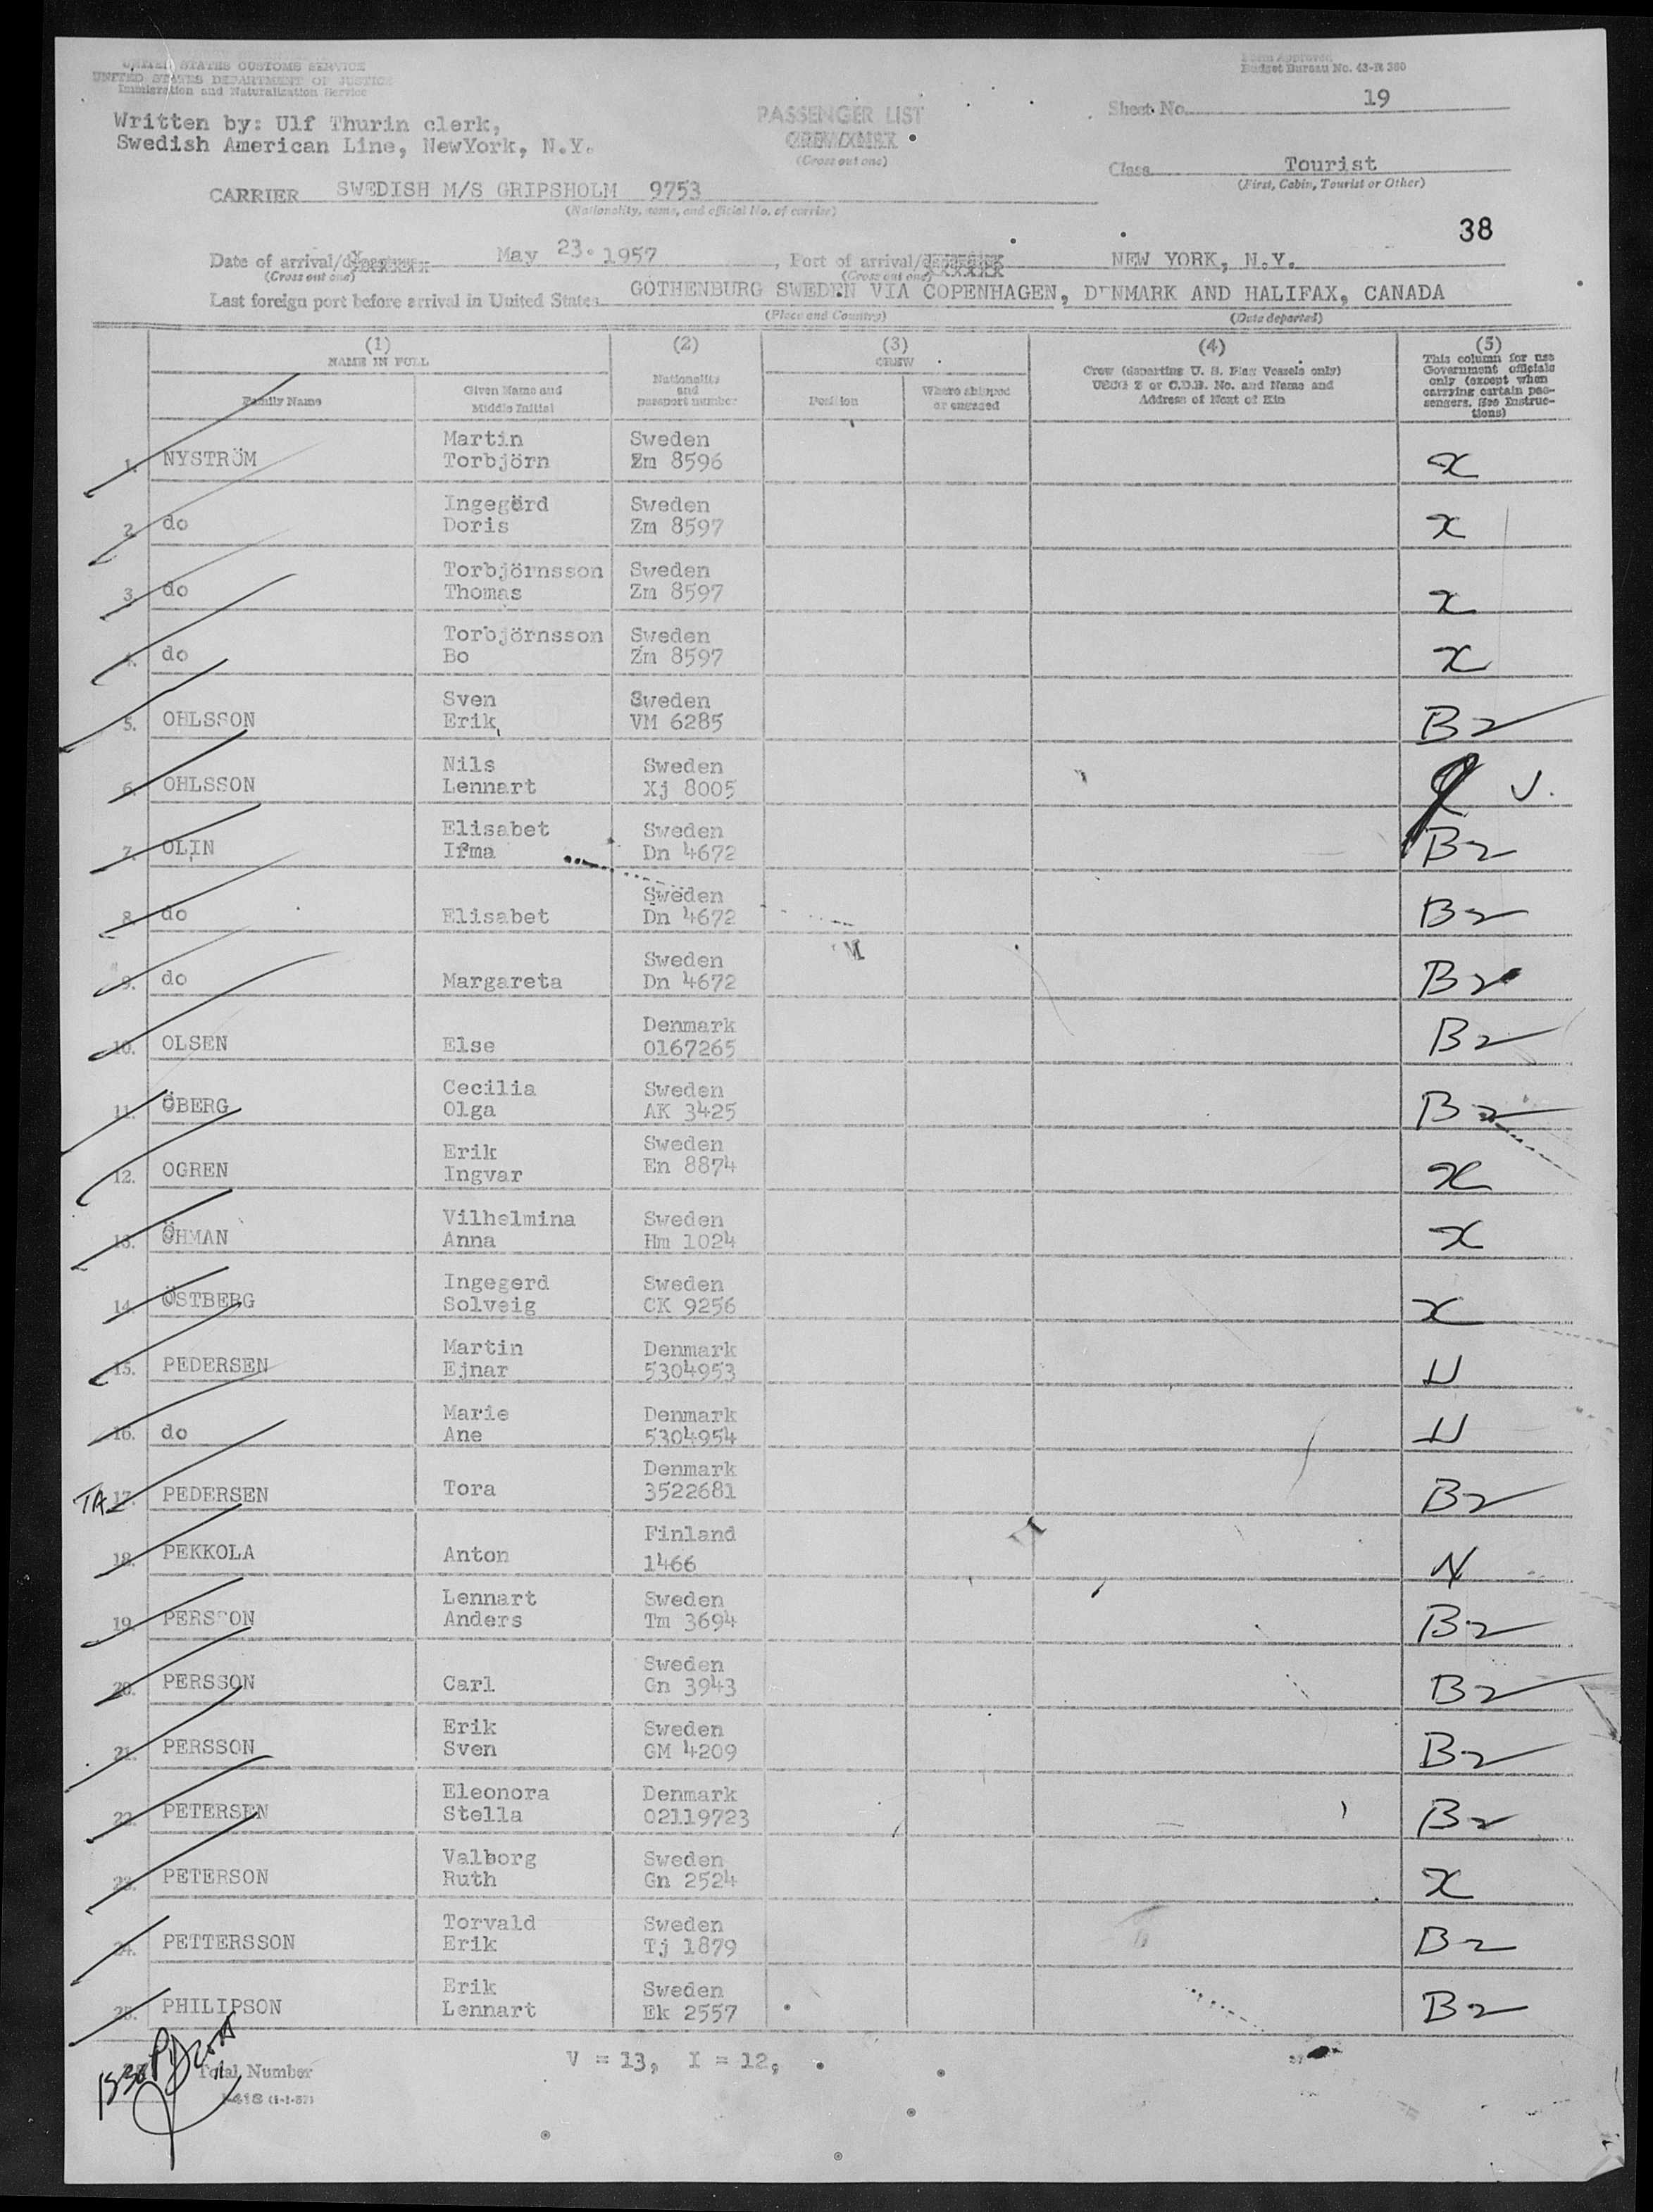 UNITED STATES CUSTOMS SERVICE
UNITED STATES DEPARTMENT OF JUSTICE
Immigration and Naturalization Service
Form Approved
Budget Bureau No. 43-R 380
Written by: Ulf Thurin clerk,
Swedish American Line, NewYork, N.Y.
PASSENGER LIST
(Cross out one)
Sheet No. 19
Class Tourist
(First, Cabin, Tourist or Other)
CARRIER SWEDISH M/S GRIPSHOLM 9753
(Nationality, name, and official No. of carrier)
38
Date of arrival/departure May 23. 1957, Port of arrival/departure NEW YORK, N.Y.
(Cross out one) (Cross out one)
Last foreign port before arrival in United States GOTHENBURG SWEDEN VIA COPENHAGEN, DENMARK AND HALIFAX, CANADA
(Place and Country) (Date departed)
(1) (2) (3) (4) (5)
NAME IN FULL
Family Name
Given Name and Middle Initial
Nationality and passport number
CREW
Position
Where shipped or engaged
Crew (departing U. S. Flag Vessels only)
USCG Z or C.D.B. No. and Name and
Address of Next of Kin
This column for use
Government officials
only (except when
carrying certain pas-
sengers. See Instruc-
tions)
Martin Sweden
1. NYSTRÖM Torbjörn Zm 8596 x
Ingegerd Sweden
2. do Doris Zm 8597 x
Torbjörnsson Sweden
3. do Thomas Zm 8597 x
Torbjörnsson Sweden
4. do Bo Zm 8597 x
Sven Sweden
5. OHLSSON Erik VM 6285 B2
Nils Sweden
6. OHLSSON Lennart Xj 8005
Elisabet Sweden
7. OLIN Irma Dn 4672 B2
Sweden
8. do Elisabet Dn 4672 B2
Sweden
9. do Margareta Dn 4672 B2
Denmark
10. OLSEN Else 0167265 B2
Cecilia Sweden
11. ÖBERG Olga AK 3425 B2
Erik Sweden
12. OGREN Ingvar En 8874 x
Vilhelmina Sweden
13. ÖHMAN Anna Hm 1024 x
Ingegerd Sweden
14. ÖSTBERG Solveig CK 9256 x
Martin Denmark
15. PEDERSEN Ejnar 5304953 U
Marie Denmark
16. do Ane 5304954 U
Denmark
TA 17. PEDERSEN Tora 3522681 B2
Finland
18. PEKKOLA Anton 1466 N
Lennart Sweden
19. PERSSON Anders Tm 3694 B2
Sweden
20. PERSSON Carl Gn 3943 B2
Erik Sweden
21. PERSSON Sven GM 4209 B2
Eleonora Denmark
22. PETERSEN Stella 02119723 B2
Valborg Sweden
23. PETERSON Ruth Gn 2524 x
Torvald Sweden
24. PETTERSSON Erik Tj 1879 B2
Erik Sweden
25. PHILIPSON Lennart Ek 2557 B2
V = 13, I = 12,
Total Number
I-418 (1-1-57)